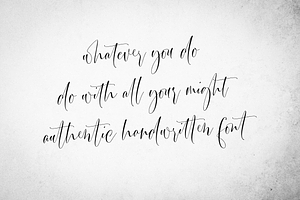 whatever you do
do with all your might
authentic handwritten font